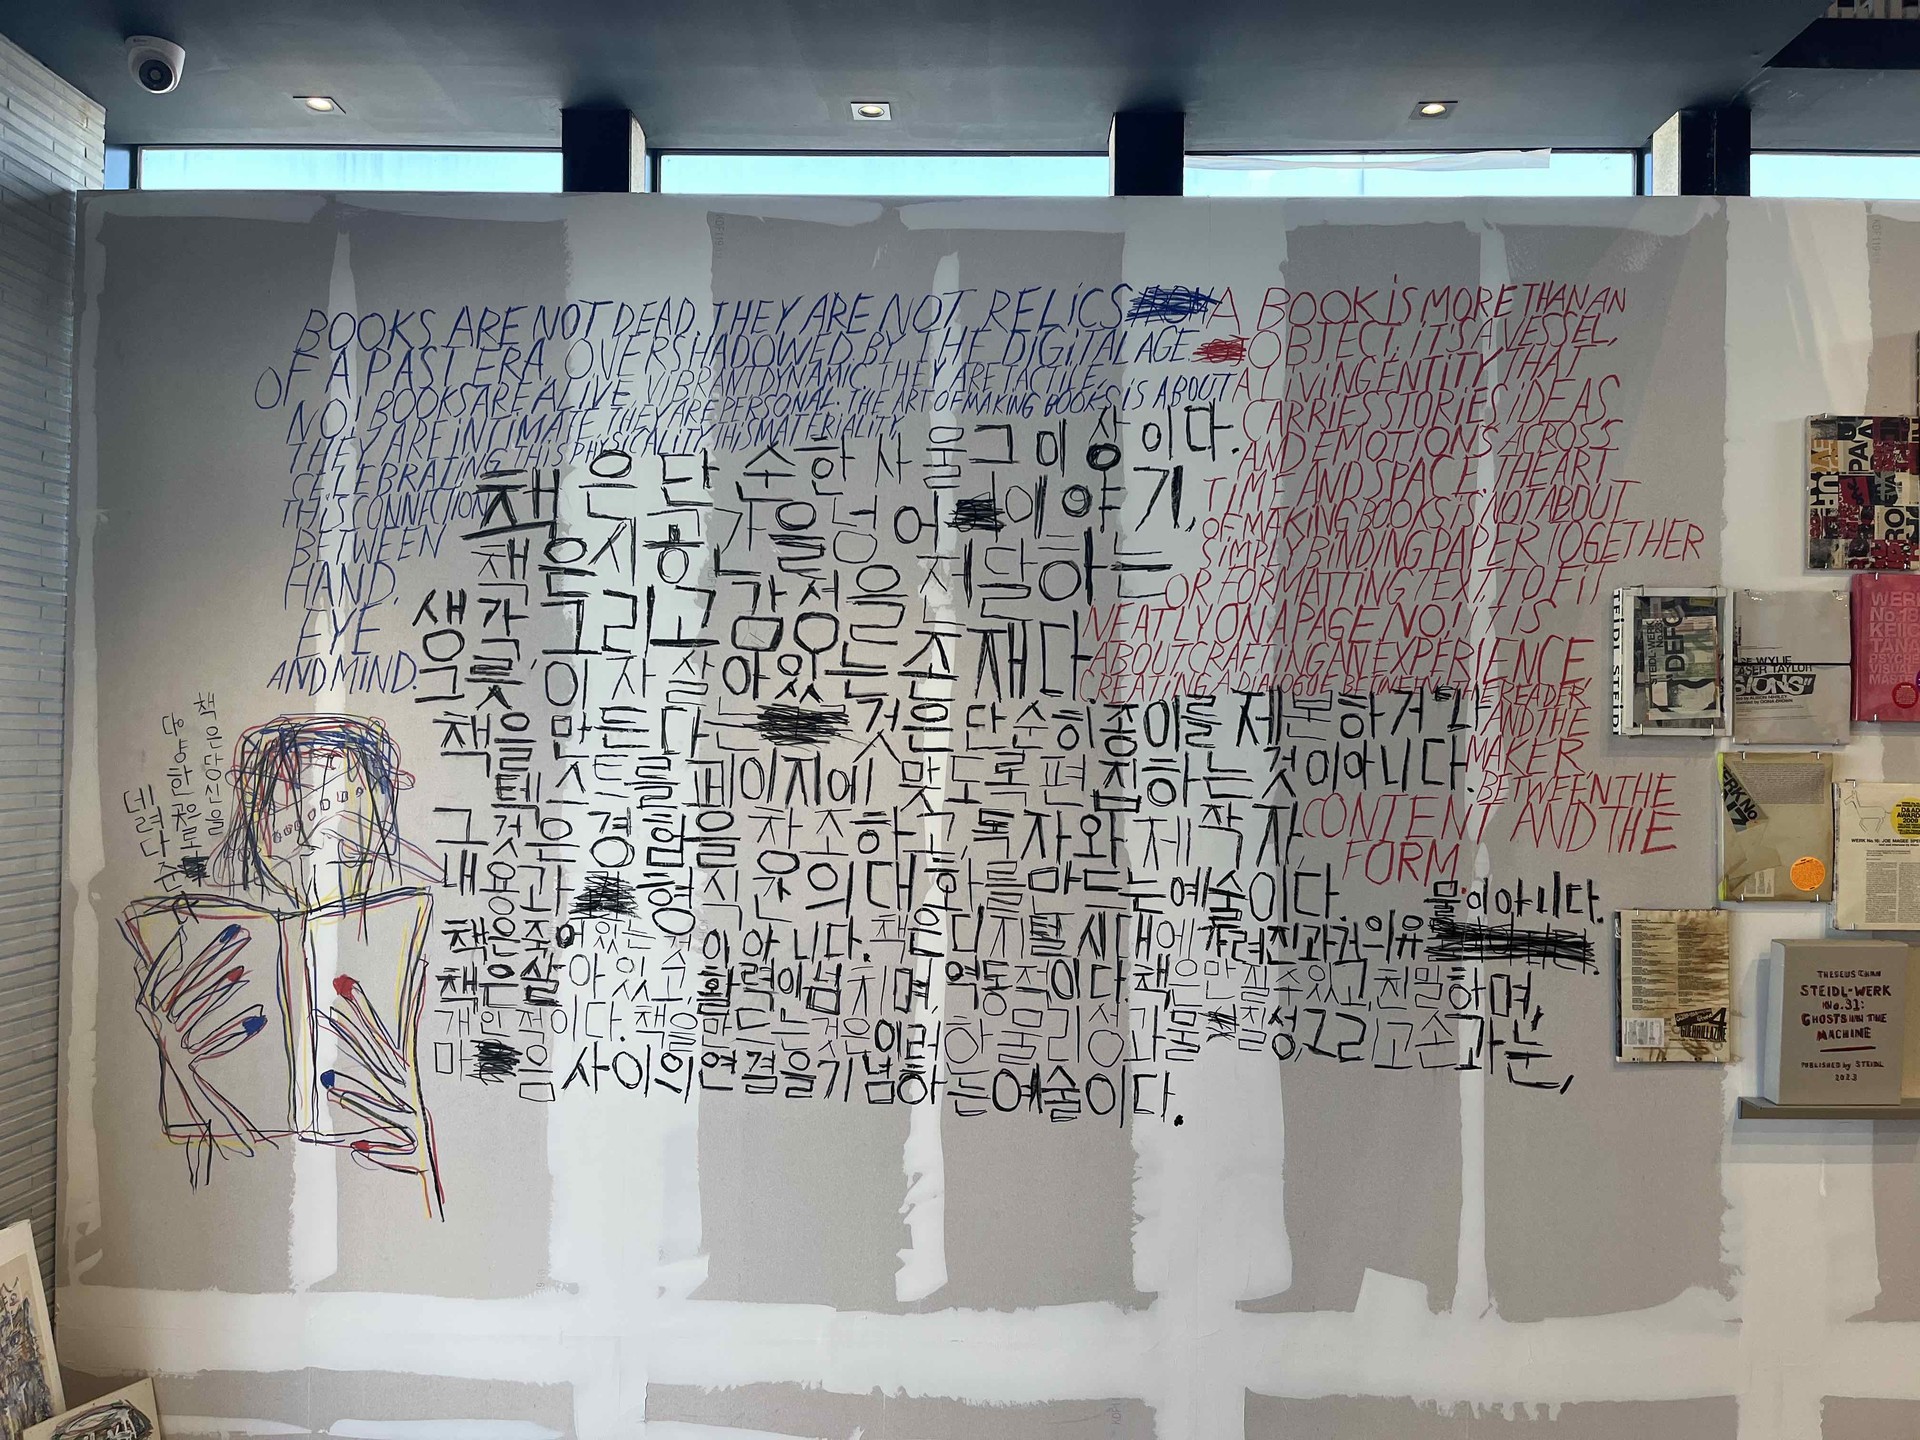 BOOKS ARE NOT DEAD. THEY ARE NOT RELICS
OF A PAST ERA OVERSHADOWED BY THE DIGITAL AGE.
NO! BOOKS ARE ALIVE, VIBRANT, DYNAMIC. THEY ARE TACTILE.
THEY ARE INTIMATE. THEY ARE PERSONAL. THE ART OF MAKING BOOKS IS ABOUT
CELEBRATING THIS PHYSICALITY, THIS MATERIALITY,
THIS CONNECTION
BETWEEN
HAND,
EYE
AND MIND.
A BOOK IS MORE THAN AN
OBJECT. IT'S A VESSEL,
A LIVING ENTITY THAT
CARRIES STORIES, IDEAS
AND EMOTIONS ACROSS
TIME AND SPACE. THE ART
OF MAKING BOOKS IS NOT ABOUT
SIMPLY BINDING PAPER TOGETHER
OR FORMATTING TEXT TO FIT
NEATLY ON A PAGE. NO! IT IS
ABOUT CRAFTING AN EXPERIENCE,
CREATING A DIALOGUE BETWEEN THE READER,
AND THE
MAKER
BETWEEN THE
CONTENT AND THE
FORM.
책은 단순한 사물 그 이상이다.
책은 시공간을 넘어 이야기,
생각, 그리고 감정을 전달하는
그릇, 이자 살아있는 존재다.
책을 만든다는 것은 단순히 종이를 제본하거나
텍스트를 페이지에 맞도록 편집하는 것이 아니다.
그것은 경험을 창조하고, 독자와 제작자,
내용과 형식 옷의 대화를 만드는 예술이다.
책은 죽어 있는 것이 아니다. 책은 디지털 시대에 가려진 과거의 유물이 아니다.
책은 살아 있고, 활력이 넘치며, 역동적이다. 책은 만질 수 있고, 친밀하며,
개인적이다. 책을 만드는 것은 이러한 물리성과 물질성, 그리고 손과 눈,
마음 사이의 연결을 기념하는 예술이다.
책은 당신을
다양한 곳으로
데려다준다
THESEUS CHAN
STEIDL-WERK
No.31:
GHOSTS IN THE
MACHINE
PUBLISHED by STEIDL
2023